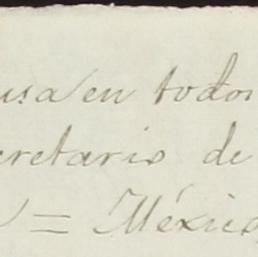 usa en todos
cretario de
= México